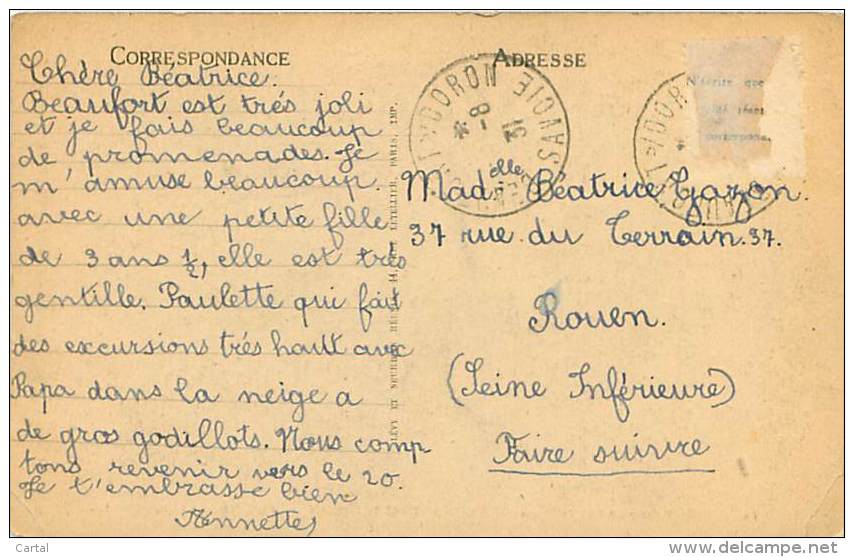 CORRESPONDANCE
Chère Béatrice.
Beaufort est trés joli
et je fais beaucoup
de promenades. Je
m'amuse beaucoup
avec une petite fille
de 3 ans 1/2, elle est très
gentille. Paulette qui fait
des excursions trés haut avec
Papa dans la neige a
de gros godillots. Nous comp
tons revenir vers le 20.
Je t'embrasse bien
Annette
LÉVY ET NEURDEIN RÉUNIS, 44, LETELLIER, PARIS, IMP.
ADRESSE
DORON SAVOIE
8 - 31
N'écrire que
DORON
Mad. elle Béatrice Gazon.
37 rue du Terrain. 37.
Rouen.
(Seine Inférieure)
Faire suivre
Cartal
delcampe.net